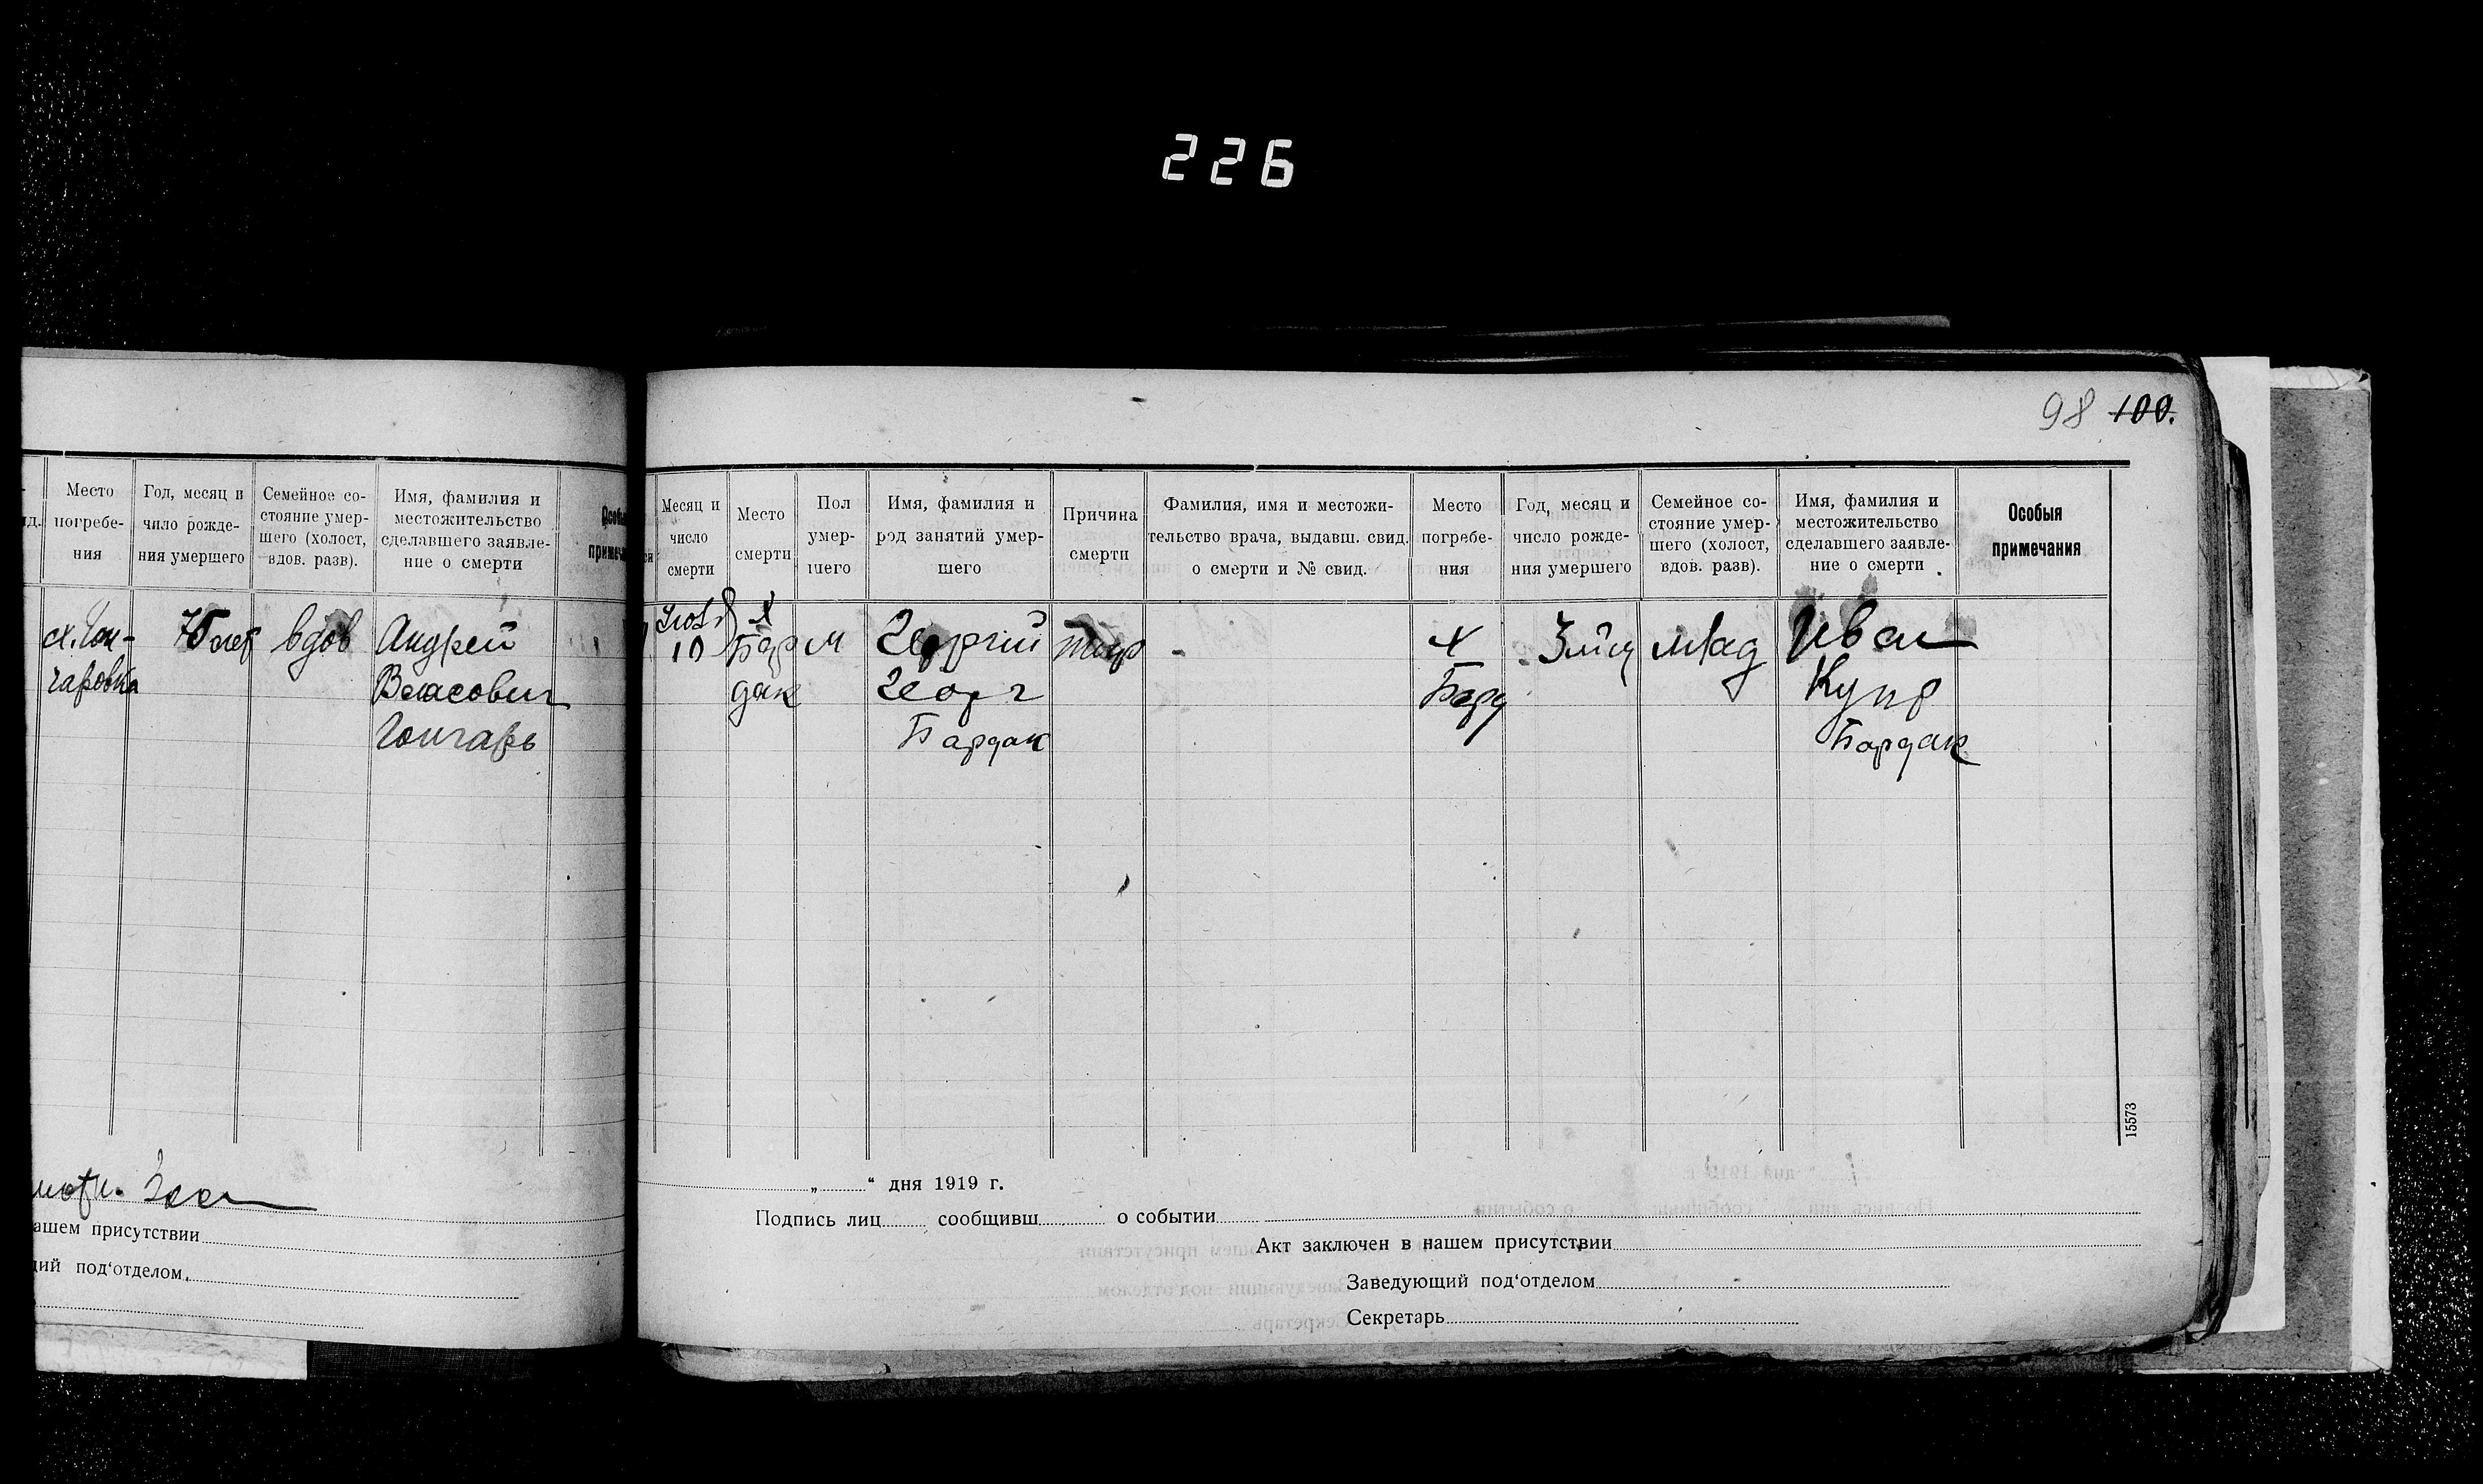 226
98 100.
Место
погребе-
ния
Год, месяц и
число рожде-
ния умершего
Семейное со-
стояние умер-
шего (холост,
вдов. разв).
Имя, фамилия и
местожительство
сделавшего заявле-
ние о смерти
Особы
примеча
х. Гон-
чаровка
75 лет
вдов
Андрей
Власович
Гончарь
ашем присутствии
ий под‘отделом.
Месяц и
число
смерти
Место
смерти
Пол
умер-
шего
Имя, фамилия и
род занятий умер-
шего
Причина
смерти
Фамилия, имя и местожи-
тельство врача, выдавш. свид.
о смерти и № свид.
Место
погребе-
ния
Год, месяц и
число рожде-
ния умершего
Семейное со-
стояние умер-
шего (холост,
вдов. разв).
Имя, фамилия и
местожительство
сделавшего заявле-
ние о смерти
Особыя
примечания
10
х
Бар
дак
м
Георгий
Георг
Бардак
тиф
-
х
Бард
млад
Иван
Купр
Бардак
„ “ дня 1919 г.
Подпись лиц сообщивш о событии
Акт заключен в нашем присутствии
Заведующий под‘отделом
Секретарь
15573